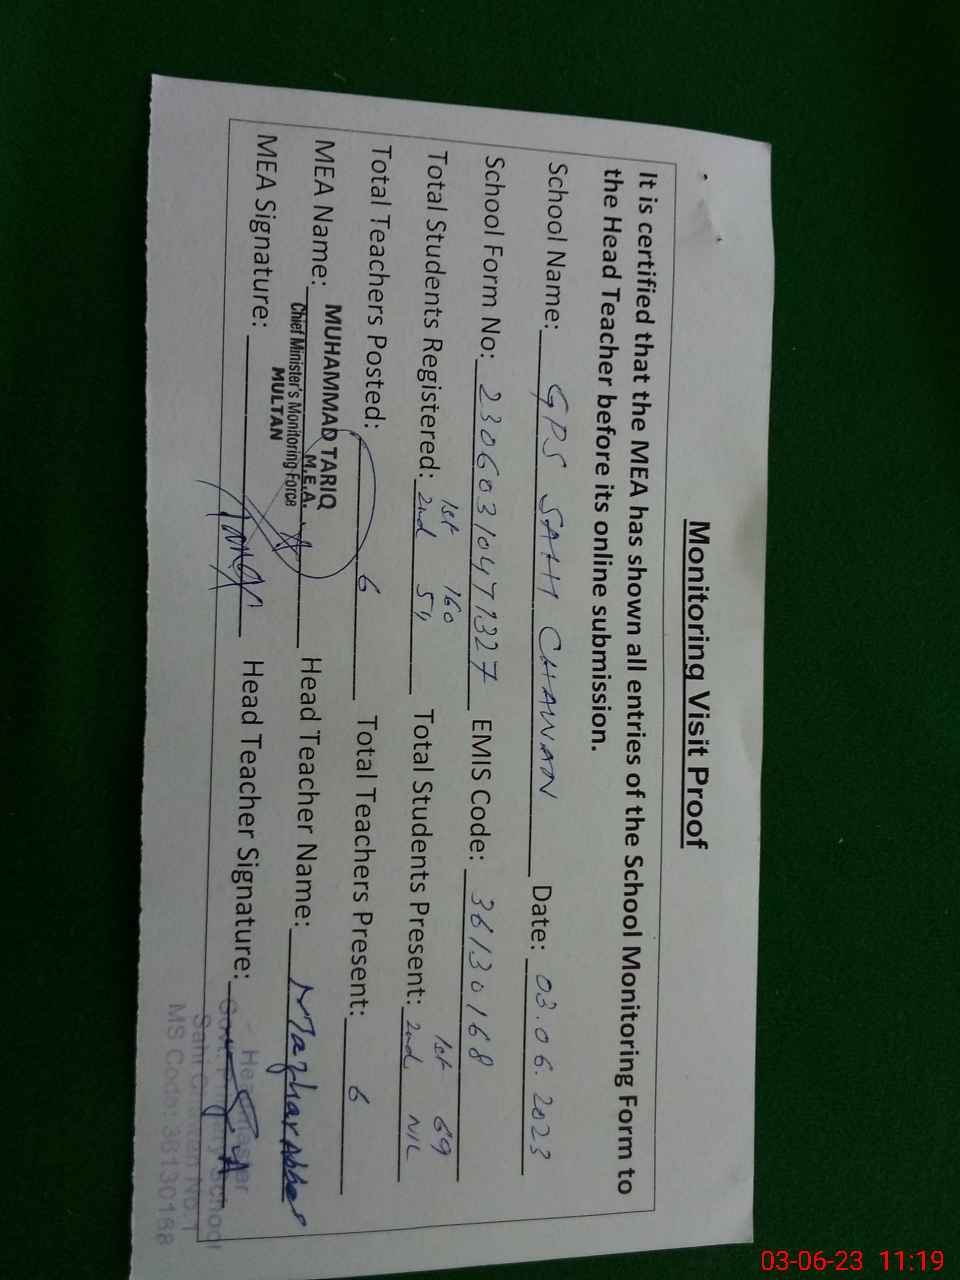 Monitoring Visit Proof
It is certified that the MEA has shown all entries of the School Monitoring Form to
the Head Teacher before its online submission.
School Name: GPS SAHH CHAWAN Date: 03.06.2023
School Form No: 23060310471327 EMIS Code: 36130168
1st 160 1st 69
Total Students Registered: 2nd 54 Total Students Present: 2nd NIL
Total Teachers Posted: 6 Total Teachers Present: 6
MEA Name: MUHAMMAD TARIQ Head Teacher Name: Mazhar Abbas
M.E.A.
Chief Minister's Monitoring Force
MULTAN
MEA Signature: Tariq Head Teacher Signature:
Headmaster
Govt. Primary School
No.1
MS Code: 36130168
03-06-23 11:19